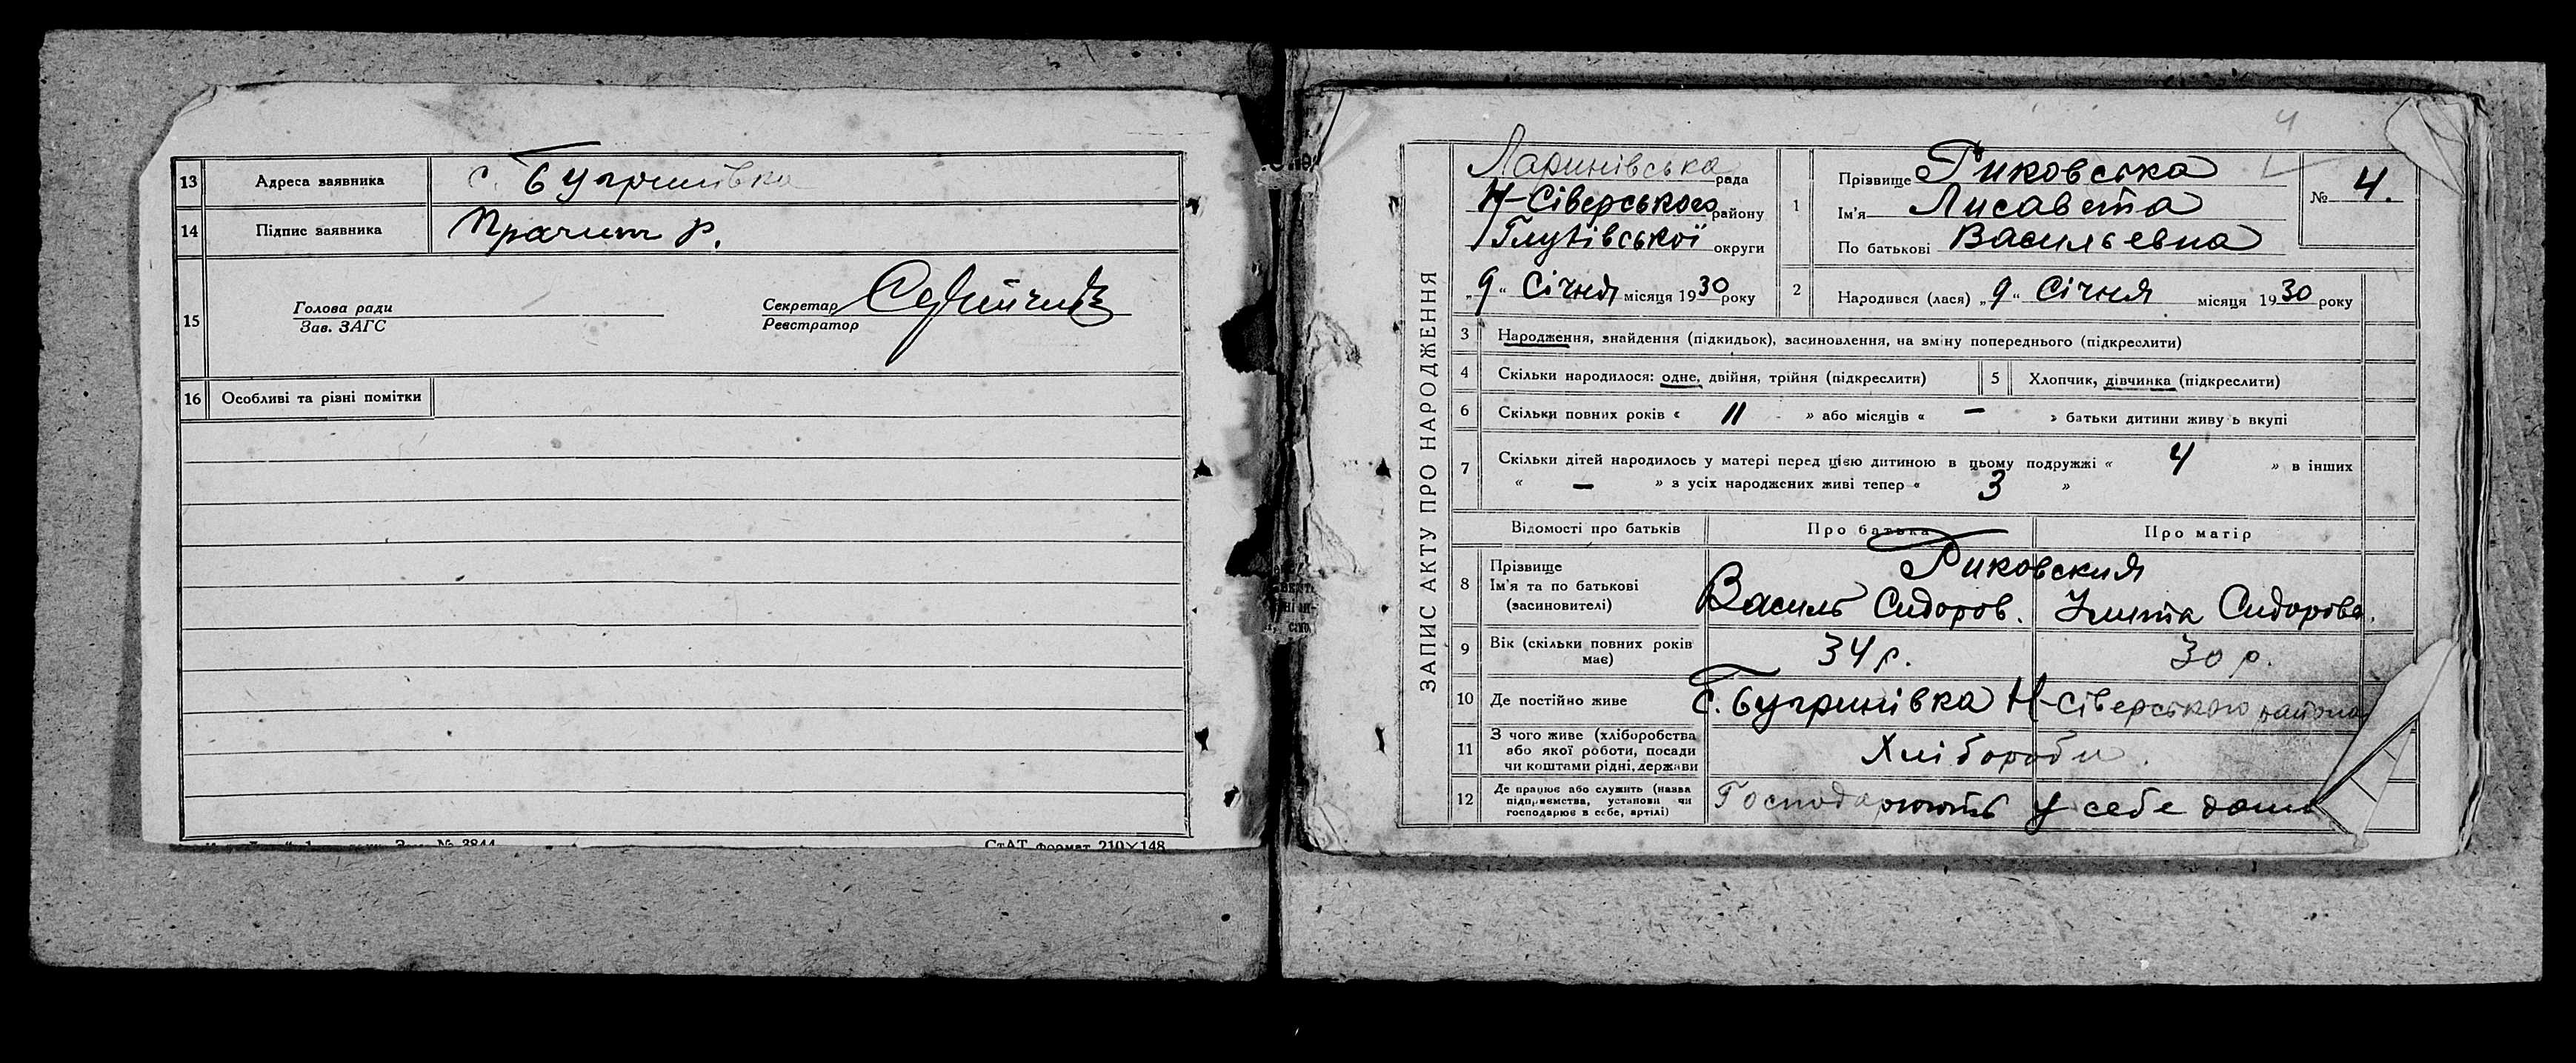 13 Адреса заявника с. Бугринівка
14 Підпис заявника
15 Голова ради
Зав. ЗАГС
Секретар
Реєстратор
16 Особливі та різні помітки
№ 3844
СтАТ формат 210×148
4
ЗАПИС АКТУ ПРО НАРОДЖЕННЯ
Ларинівська рада
Н-Сіверського району
Глухівської округи
„9“ Січня місяця 1930 року
1 Прізвище Риковська
Ім'я Лисавета
По батькові Васильевна
№ 4.
2 Народився (лася) „9“ Січня місяця 1930 року
3 Народження, знайдення (підкидьок), засиновлення, на зміну попереднього (підкреслити)
4 Скільки народилося: одне, двійня, трійня (підкреслити)
5 Хлопчик, дівчинка (підкреслити)
6 Скільки повних років « 11 » або місяців « — » батьки дитини живуть вкупі
7 Скільки дітей народилось у матері перед цією дитиною в цьому подружжі « 4 » в інших
« — » з усіх народжених живі тепер « 3 »
Відомості про батьків Про батька Про матір
8 Прізвище
Ім'я та по батькові
(засиновителі)
Риковския
Василь Сидоров. Сидорова.
9 Вік (скільки повних років
має) 34 р. 30 р.
10 Де постійно живе с. Бугринівка Н-Сіверського района
11 З чого живе (хліборобства
або якої роботи, посади
чи коштами рідні, держави
Хлібороби.
12 Де працює або служить (назва
підприємства, установи чи
господарює в себе, артілі)
Господарюють у себе дома